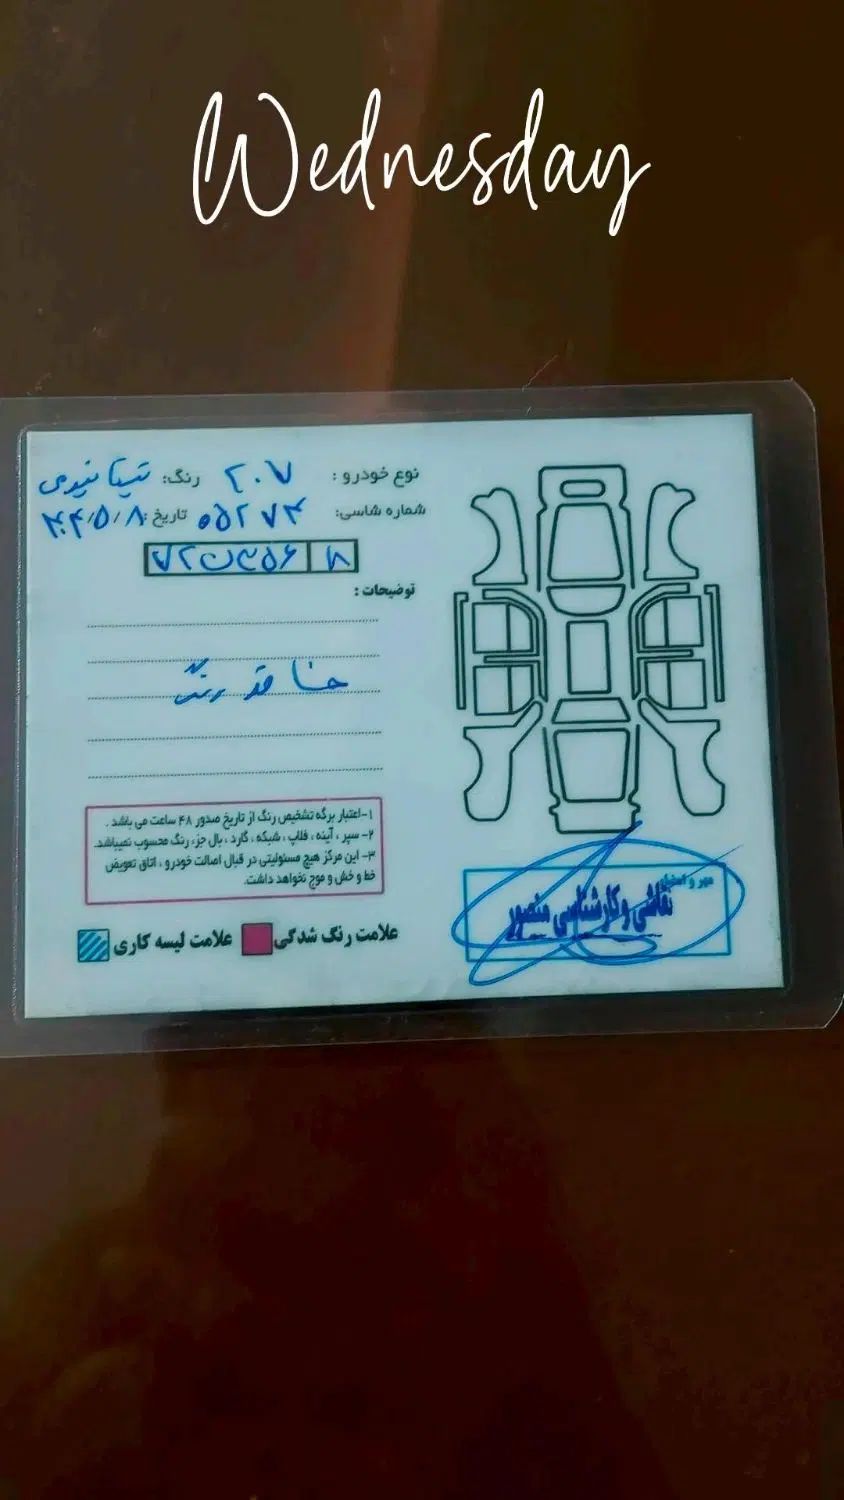 Wednesday
نوع خودرو : ۲۰۷ رنگ:
شماره شاسی: ۰۵۲۷۴ تاریخ: ۴۰۴/۵/۸
توضیحات :
فاقد رنگ
۱- اعتبار برگه تشخیص رنگ از تاریخ صدور ۴۸ ساعت می باشد .
۲- سپر ، آینه ، فلاپ ، شبکه ، گارد ، بال جزء رنگ محسوب نمیباشد.
۳- این مرکز هیچ مسئولیتی در قبال اصالت خودرو ، اتاق تعویض
خط و خش و موج نخواهد داشت.
علامت رنگ شدگی علامت لیسه کاری
مهر و امضاء
نقاشی و کارشناسی منصور